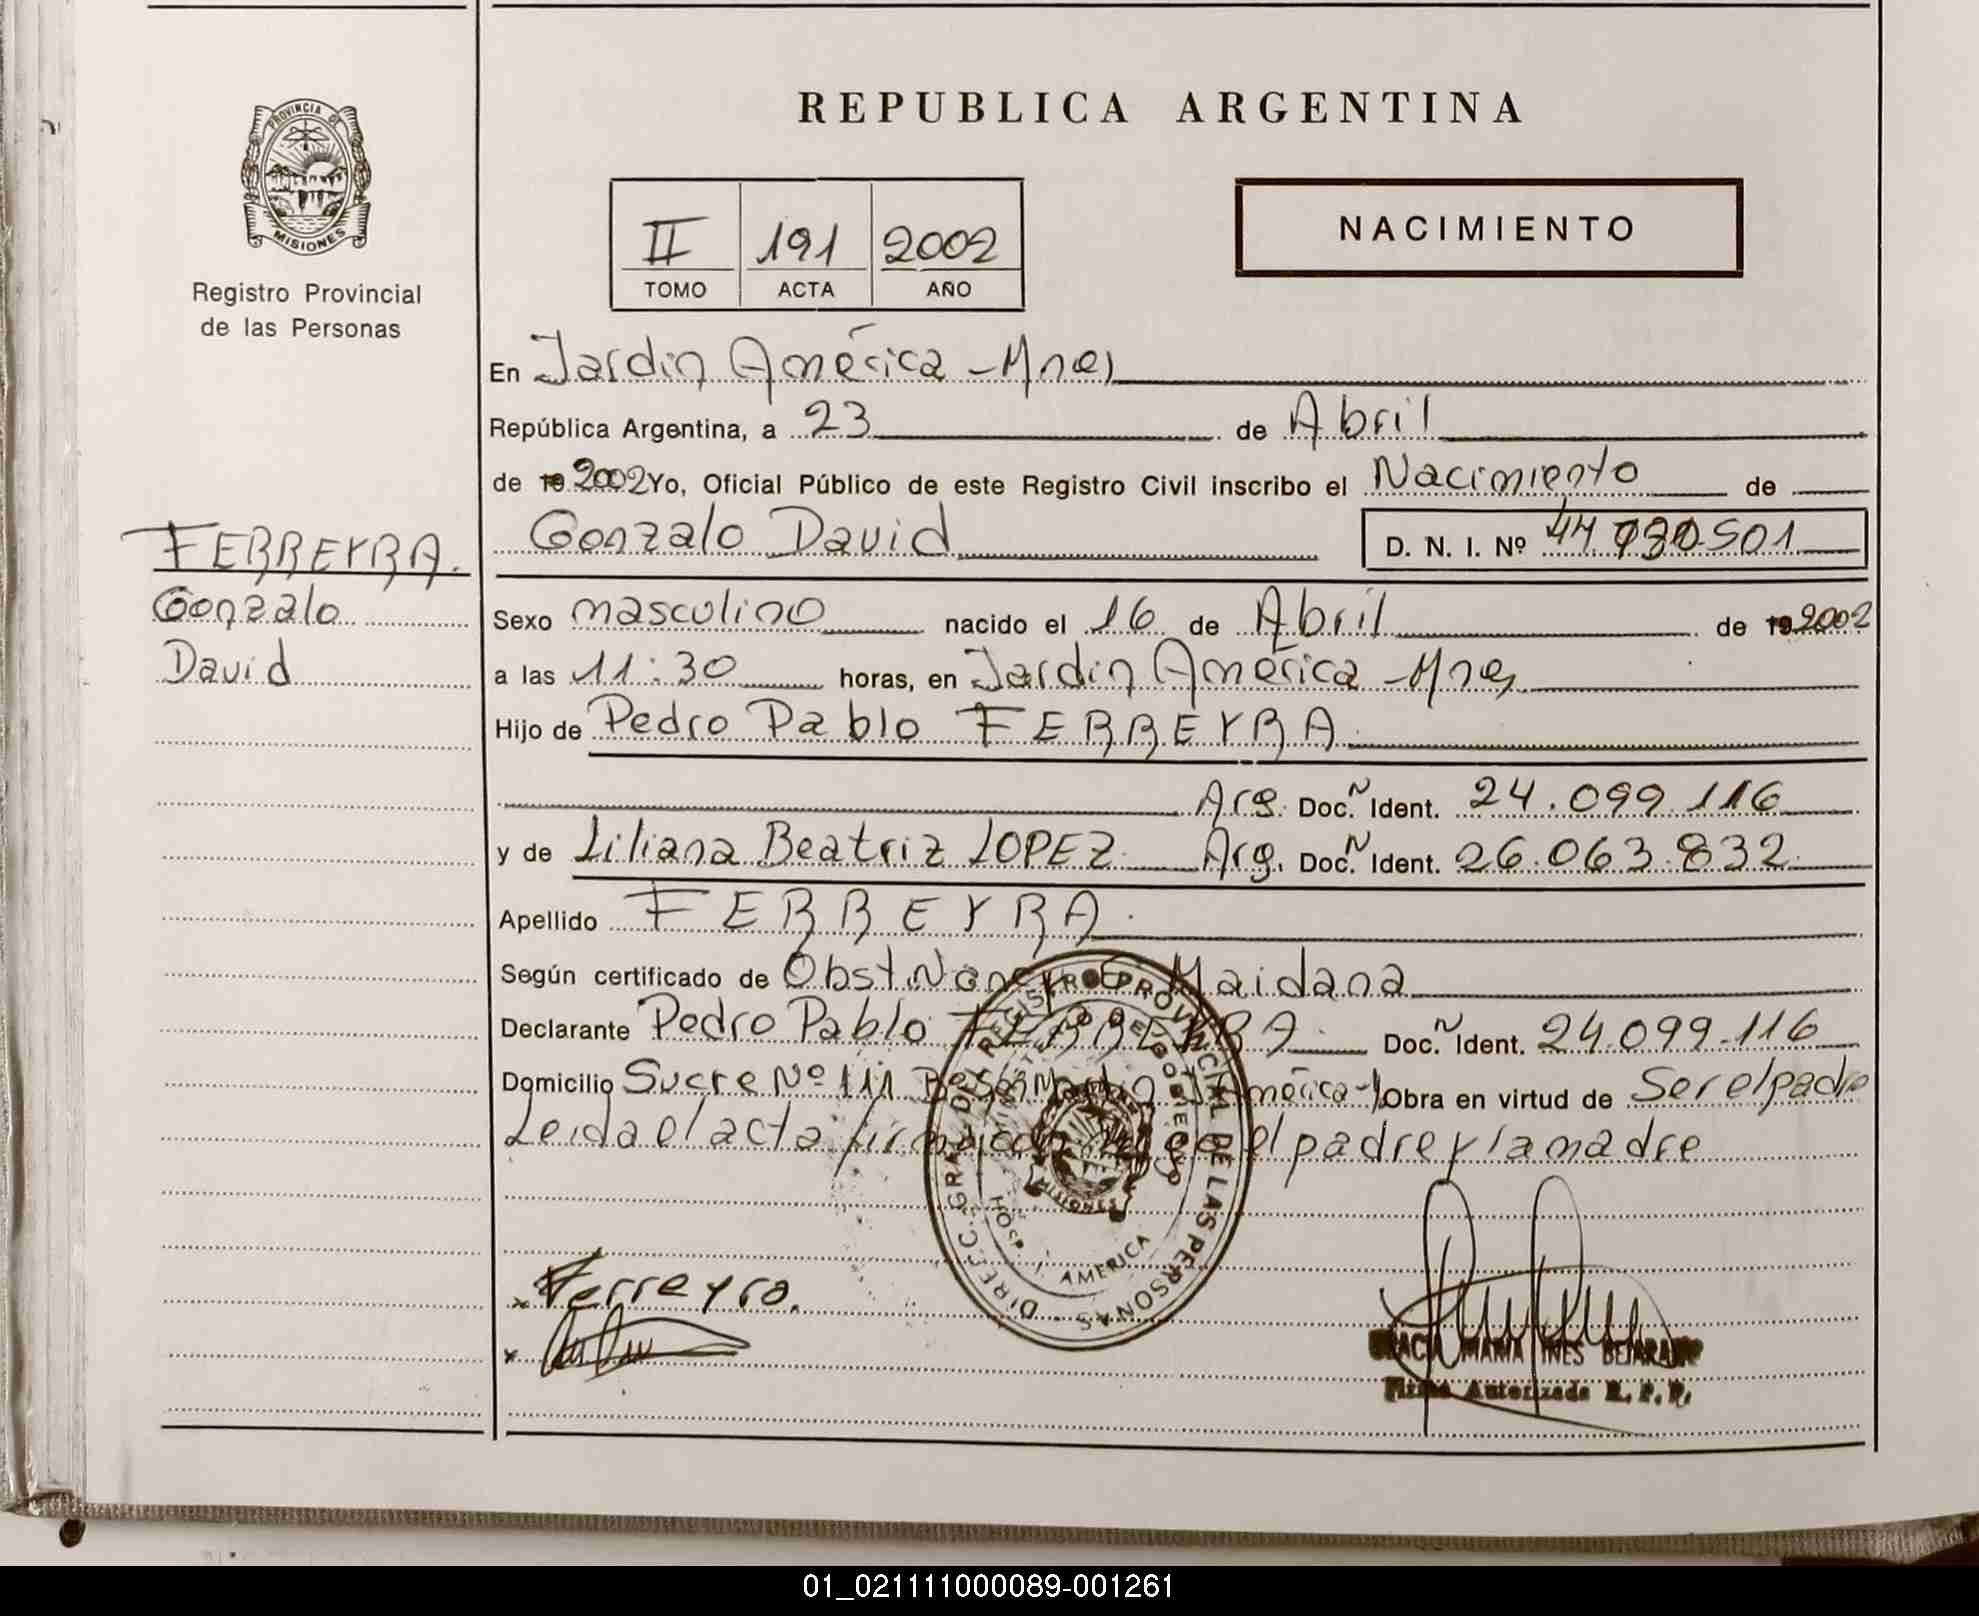 REPUBLICA ARGENTINA
PROVINCIA DE
MISIONES
Registro Provincial
de las Personas
II 191 2002
TOMO ACTA AÑO
NACIMIENTO
En Jardin América - Mnes
República Argentina, a 23 de Abril
de 19 2002 Yo, Oficial Público de este Registro Civil inscribo el Nacimiento de
Gonzalo David D. N. I. Nº 44.
FERREYRA.
Gonzalo
David
Sexo masculino nacido el 16 de Abril de 19 2002
a las 11:30 horas, en Jardin América - Mnes
Hijo de Pedro Pablo FERREYRA
Arg. Doc. N Ident. 24.099.116
y de Liliana Beatriz LOPEZ Arg. Doc. N Ident. 26.063.832
Apellido FERREYRA.
Según certificado de Obst Nancy Maidana
Declarante Pedro Pablo FERREYRA Doc. N Ident. 24.099.116
Domicilio Sucre Nº 111 América - Obra en virtud de Ser el padre
Leida el acta el padre y la madre
DIREC. GRAL. DEL REGISTRO PROVINCIAL DE LAS PERSONAS
MINISTERIO DE GOBIERNO
MISIONES
AMERICA
x Ferreyra.
x
GRACIA MARIA INES BEJARANO
Firma Autorizada R. P. P.
01_021111000089-001261